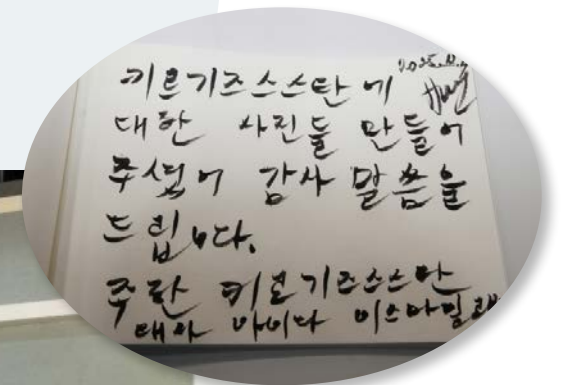 키르기즈스스탄에
대한 사진을 만들어
주셨어 감사 말씀을
드립니다.
주한 키르기즈스스탄
대사 아이다 이스마일